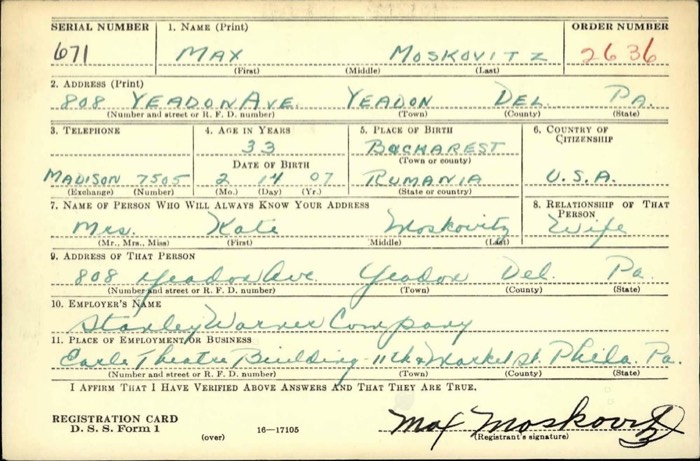 SERIAL NUMBER 1. NAME (Print) ORDER NUMBER
671 MAX MOSKOVITZ 2636
(First) (Middle) (Last)
2. ADDRESS (Print)
808 YEADON AVE. YEADON DEL. PA.
(Number and street or R. F. D. number) (Town) (County) (State)
3. TELEPHONE 4. AGE IN YEARS 5. PLACE OF BIRTH 6. COUNTRY OF CITIZENSHIP
33 BUCHAREST
DATE OF BIRTH (Town or county)
MADISON 7505 2 14 07 RUMANIA U.S.A.
(Exchange) (Number) (Mo.) (Day) (Yr.) (State or country)
7. NAME OF PERSON WHO WILL ALWAYS KNOW YOUR ADDRESS 8. RELATIONSHIP OF THAT PERSON
Mrs. Kate Moskovitz Wife
(Mr., Mrs., Miss) (First) (Middle) (Last)
9. ADDRESS OF THAT PERSON
808 Yeadon Ave. Yeadon Del. Pa.
(Number and street or R. F. D. number) (Town) (County) (State)
10. EMPLOYER'S NAME
Stanley Warner Company
11. PLACE OF EMPLOYMENT OR BUSINESS
Earle Theatre Building - 11th & Market St. Phila. Pa.
(Number and street or R. F. D. number) (Town) (County) (State)
I AFFIRM THAT I HAVE VERIFIED ABOVE ANSWERS AND THAT THEY ARE TRUE.
REGISTRATION CARD
D. S. S. Form 1 (over) 16—17105 Max Moskovitz
(Registrant's signature)